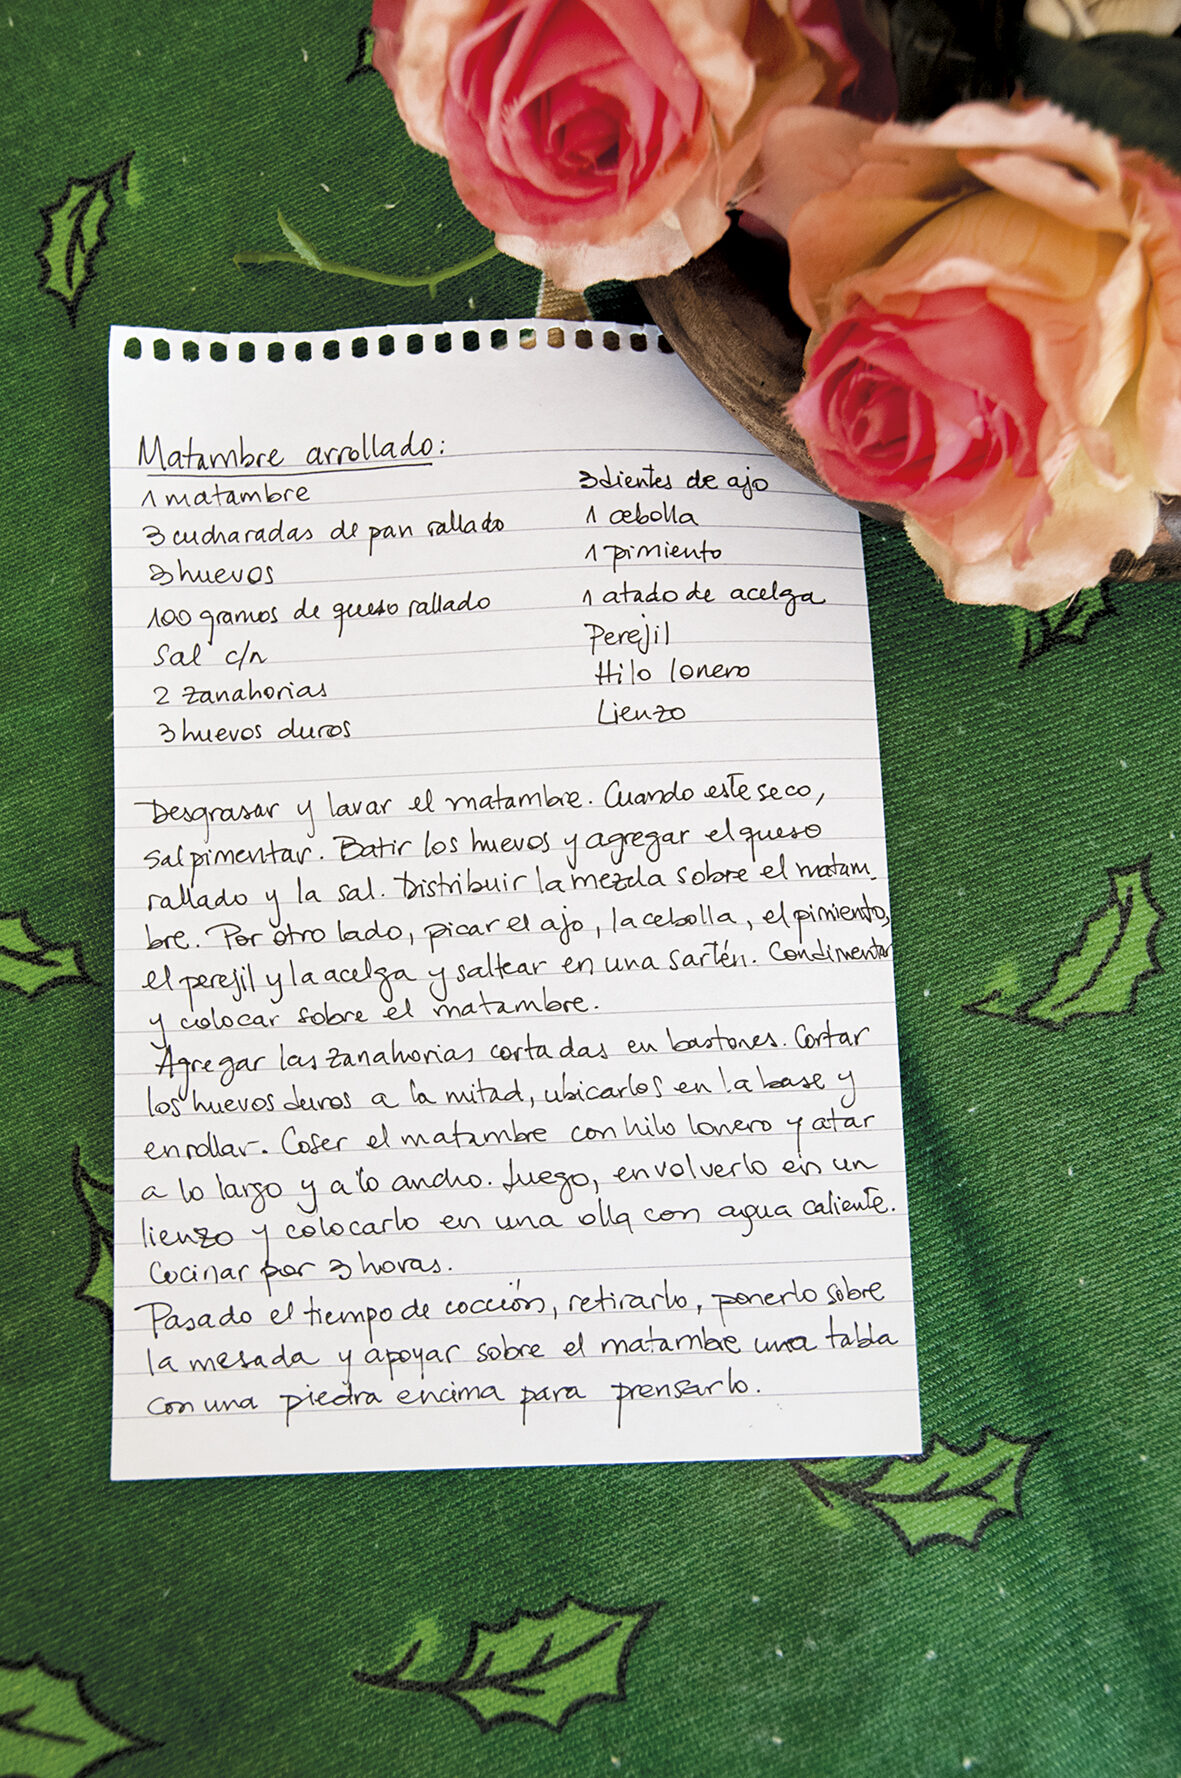 Matambre arrollado:
1 matambre
3 cucharadas de pan rallado
3 huevos
100 gramos de queso rallado
Sal c/n
2 zanahorias
3 huevos duros
3 dientes de ajo
1 cebolla
1 pimiento
1 atado de acelga
Perejil
Hilo lonero
Lienzo
Desgrasar y lavar el matambre. Cuando este seco,
salpimentar. Batir los huevos y agregar el queso
rallado y la sal. Distribuir la mezcla sobre el matam-
bre. Por otro lado, picar el ajo, la cebolla, el pimiento,
el perejil y la acelga y saltear en una sartén. Condimentar
y colocar sobre el matambre.
Agregar las zanahorias cortadas en bastones. Cortar
los huevos duros a la mitad, ubicarlos en la base y
enrollar. Coser el matambre con hilo lonero y atar
a lo largo y a lo ancho. Luego, envolverlo en un
lienzo y colocarlo en una olla con agua caliente.
Cocinar por 3 horas.
Pasado el tiempo de cocción, retirarlo, ponerlo sobre
la mesada y apoyar sobre el matambre una tabla
con una piedra encima para prensarlo.